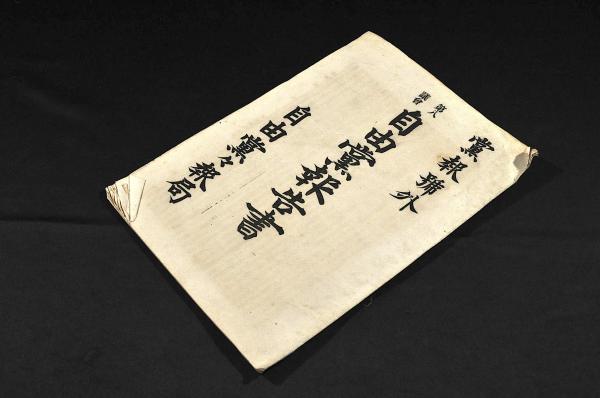 黨報號外
第八
議會
自由黨報告書
自由黨々報局